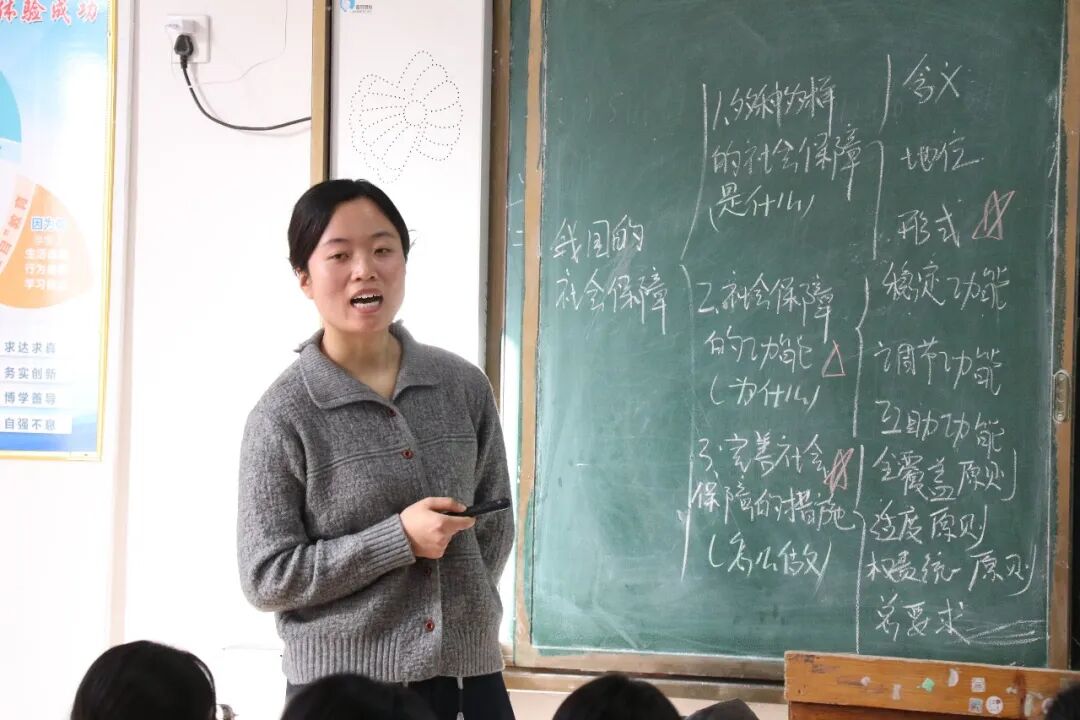 体验成功
因为
生活
行为
学习
求达求真
务实创新
博学善导
自强不息
我国的
社会保障
1.多种多样
的社会保障
(是什么)
2.社会保障
的功能
(为什么)
3.完善社会
保障的措施
(怎么做)
含义
地位
形式
稳定功能
调节功能
互助功能
全覆盖原则
适度原则
权责统一原则
总要求